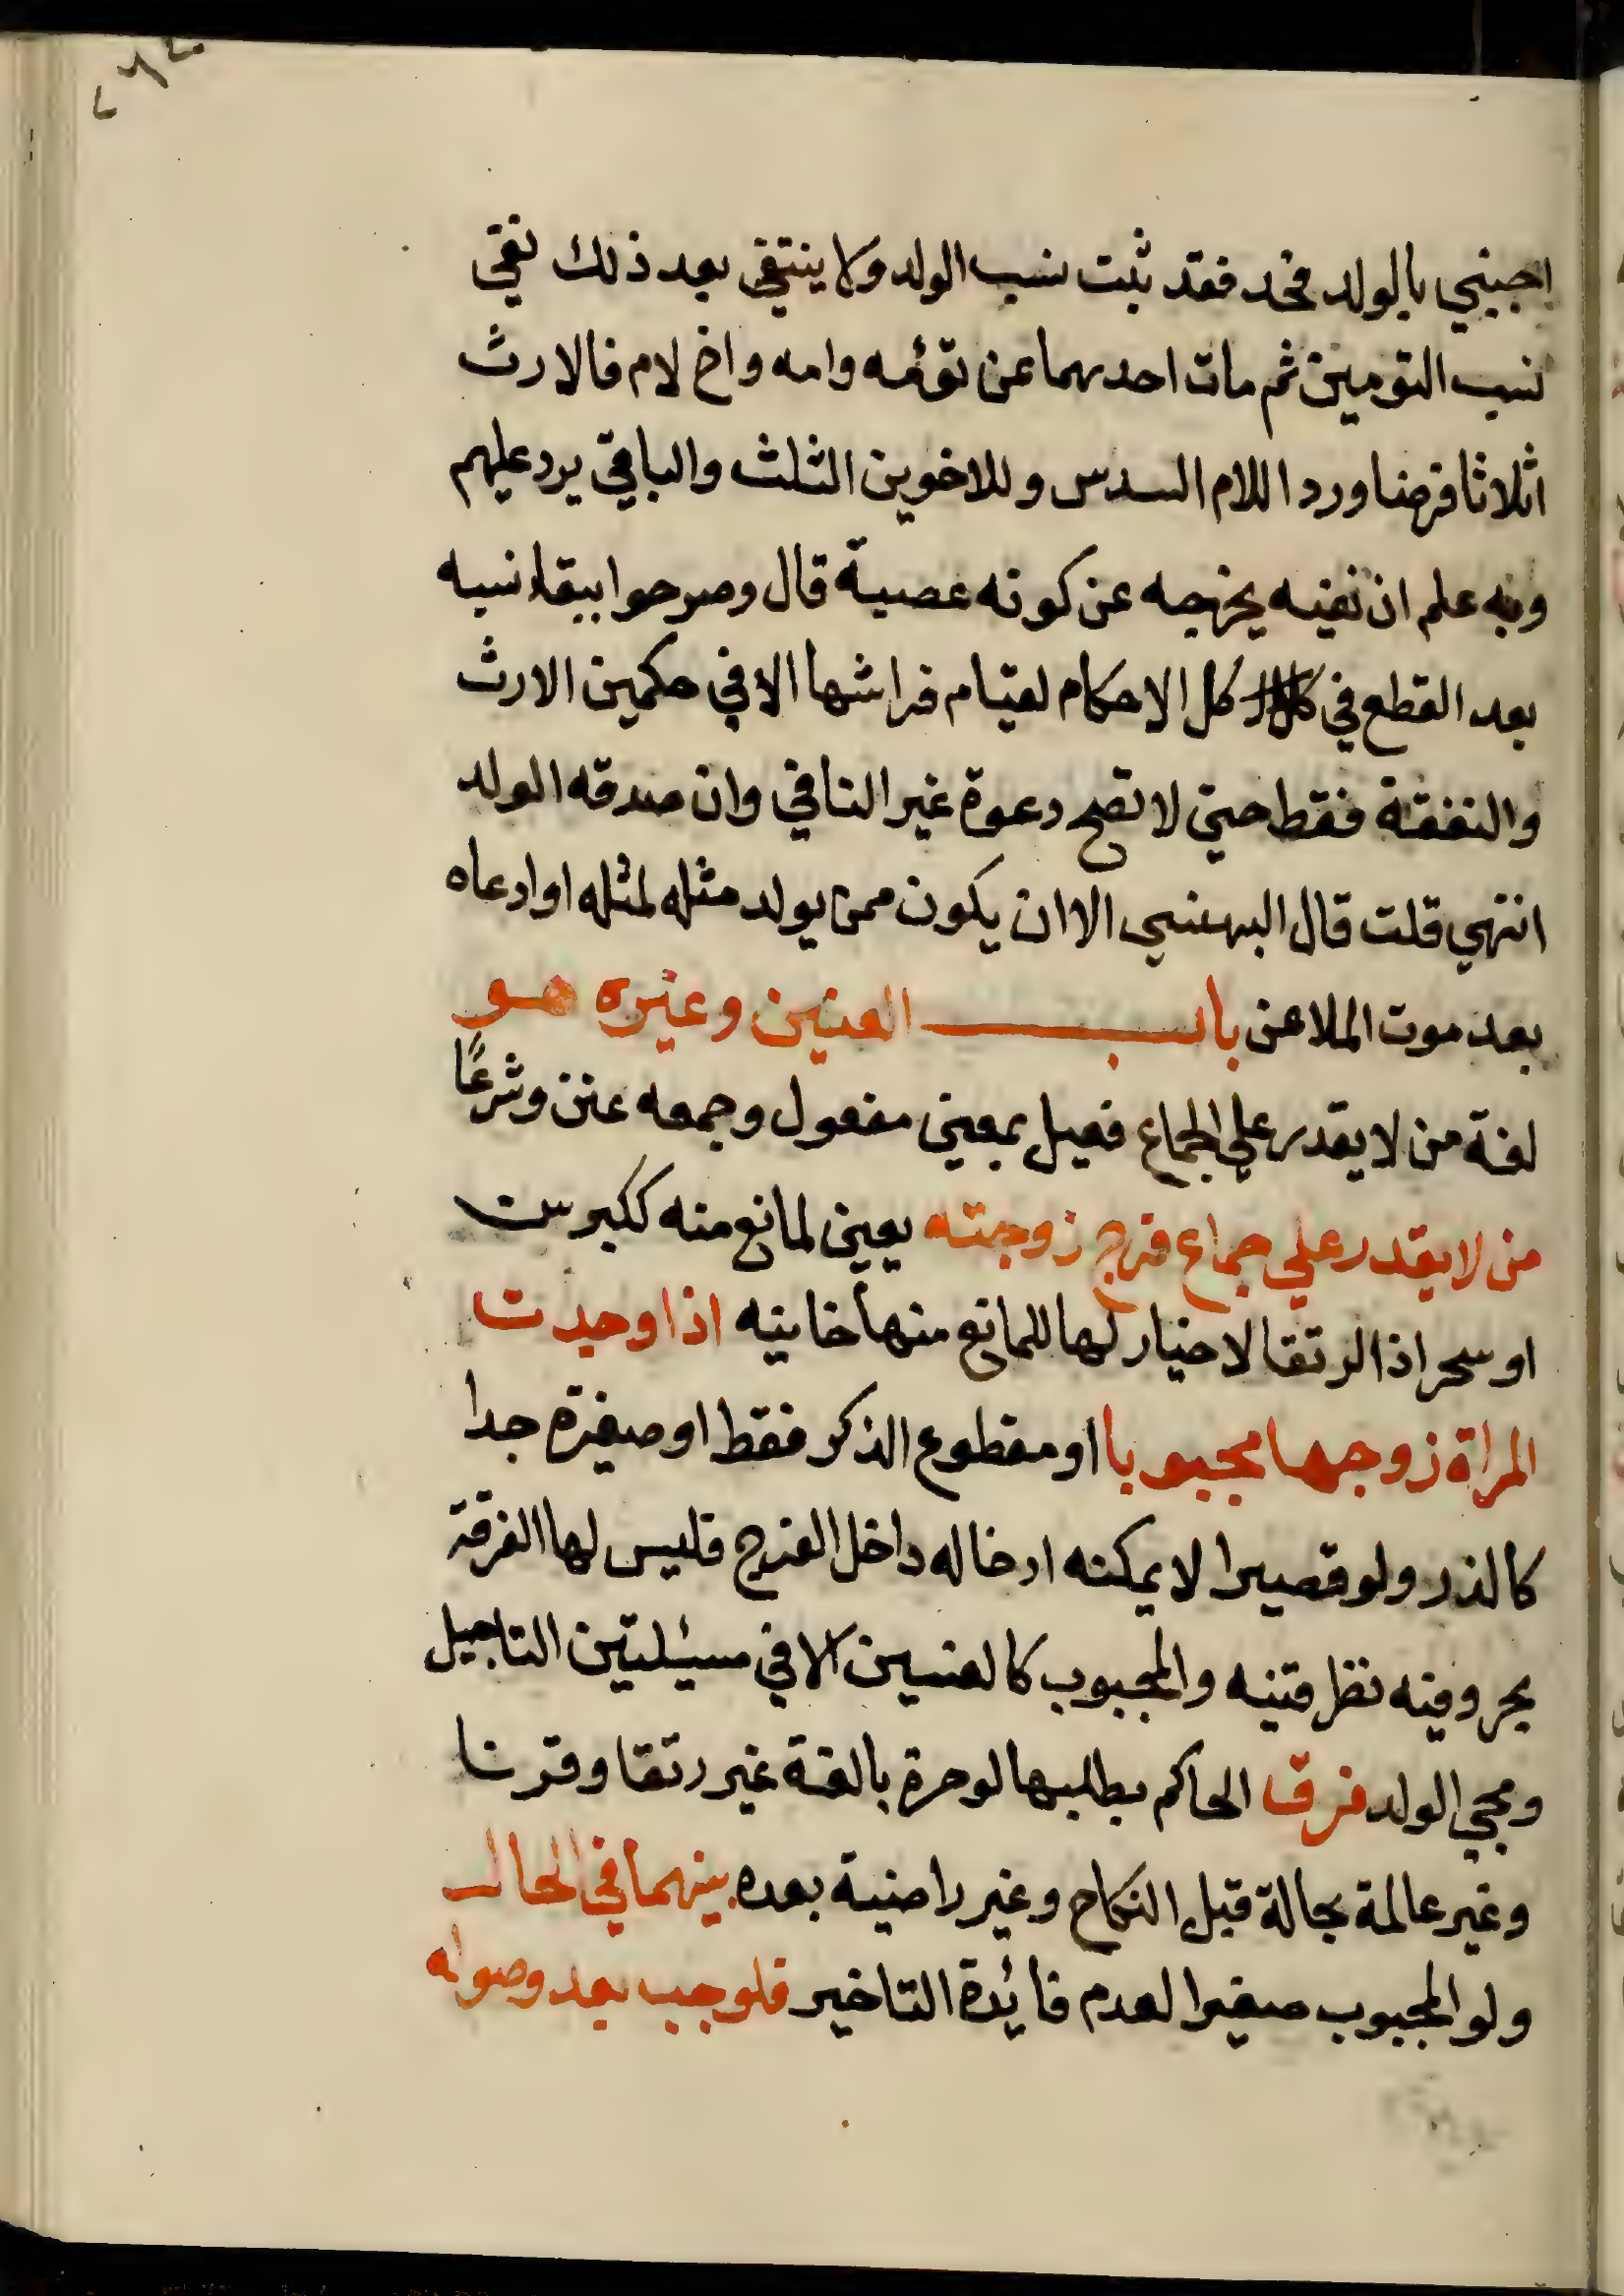 اجنبي بالولد فحد فقد ثبت نسب الولد ولا ينتفي بعد ذلك نفي
نسب التومين ثم مات احدهما عن توءمه وامه واخ لام فالارث
اثلاثا فرضا وردا للام السدس وللاخوين الثلث والباقي يرد عليهم
وبه علم ان نفيه يخرجه عن كونه عصبة قال وصرحوا ببقاء نسبه
بعد القطع في كل الاحكام لقيام فراشها الا في حكمين الارث
والنفقة فقط حتي لا تصح دعوة غير النافي وان صدقه الولد
انتهي قلت قال البهنسي الا ان يكون ممن يولد مثله لمثله او ادعاه
بعد موت الملاعن باب العنين وغيره هو
لغة من لا يقدر علي الجماع فعيل بمعني مفعول وجمعه عنن وشرعًا
من لا يقدر علي جماع فرج زوجته يعني لمانع منه ككبر سن
او سحر اذ الرتقا لا خيار لها للمانع منها خانيه اذا وجدت
المراة زوجها مجبوبا او مقطوع الذكر فقط او صغيره جدا
كالذر ولو قصيرا لا يمكنه ادخاله داخل الفرج فليس لها الفرقة
بحر وفيه نظر فتنبه والمجبوب كالعنين الا في مسئلتين التاجيل
ومجي الولد فرق الحاكم بطلبها لو حرة بالغة غير رتقا وقرنا
وغير عالمة بحالة قبل النكاح وغير راضية بعده بينهما في الحال
ولو المجبوب صغيرا لعدم فائدة التاخير فلو جب بعد وصوله